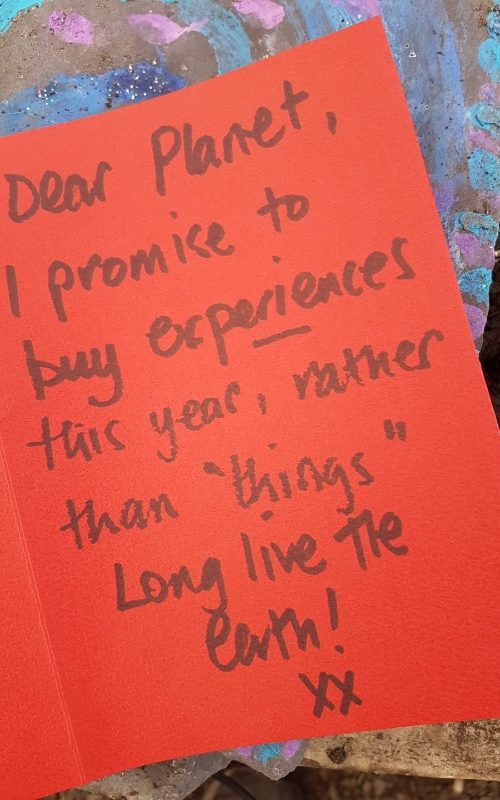 Dear Planet,
I promise to
buy experiences
this year, rather
than "things"
Long live The
Earth!
xx